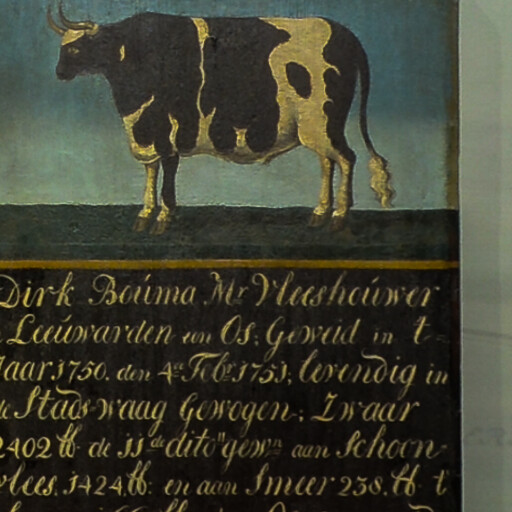 Dirk Boúma Mr Vleeshoúwer
Leeúwarden een Os; Geweid in t
Jaar.1750. den 4en Febr:1751, levendig in
de Stads-waag Gewogen; Zwaar
2402 ℔ de 11de dito gewn aan Schoon-
vlees. 1424.℔: en aan Smeer 238.℔ t